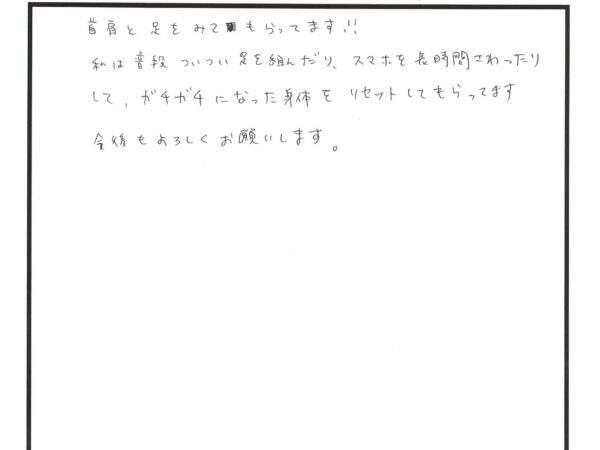 首肩と足をみてもらってます!!
私は普段ついつい足を組んだり、スマホを長時間さわったり
して、ガチガチになった身体をリセットしてもらってます
今後もよろしくお願いします。